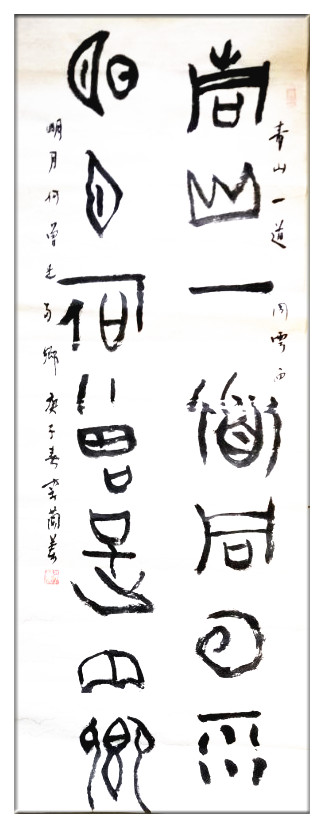 青山一道同雲雨
青山一道同云雨
明月何曾是兩鄉
明月何曾是兩鄉庚子春